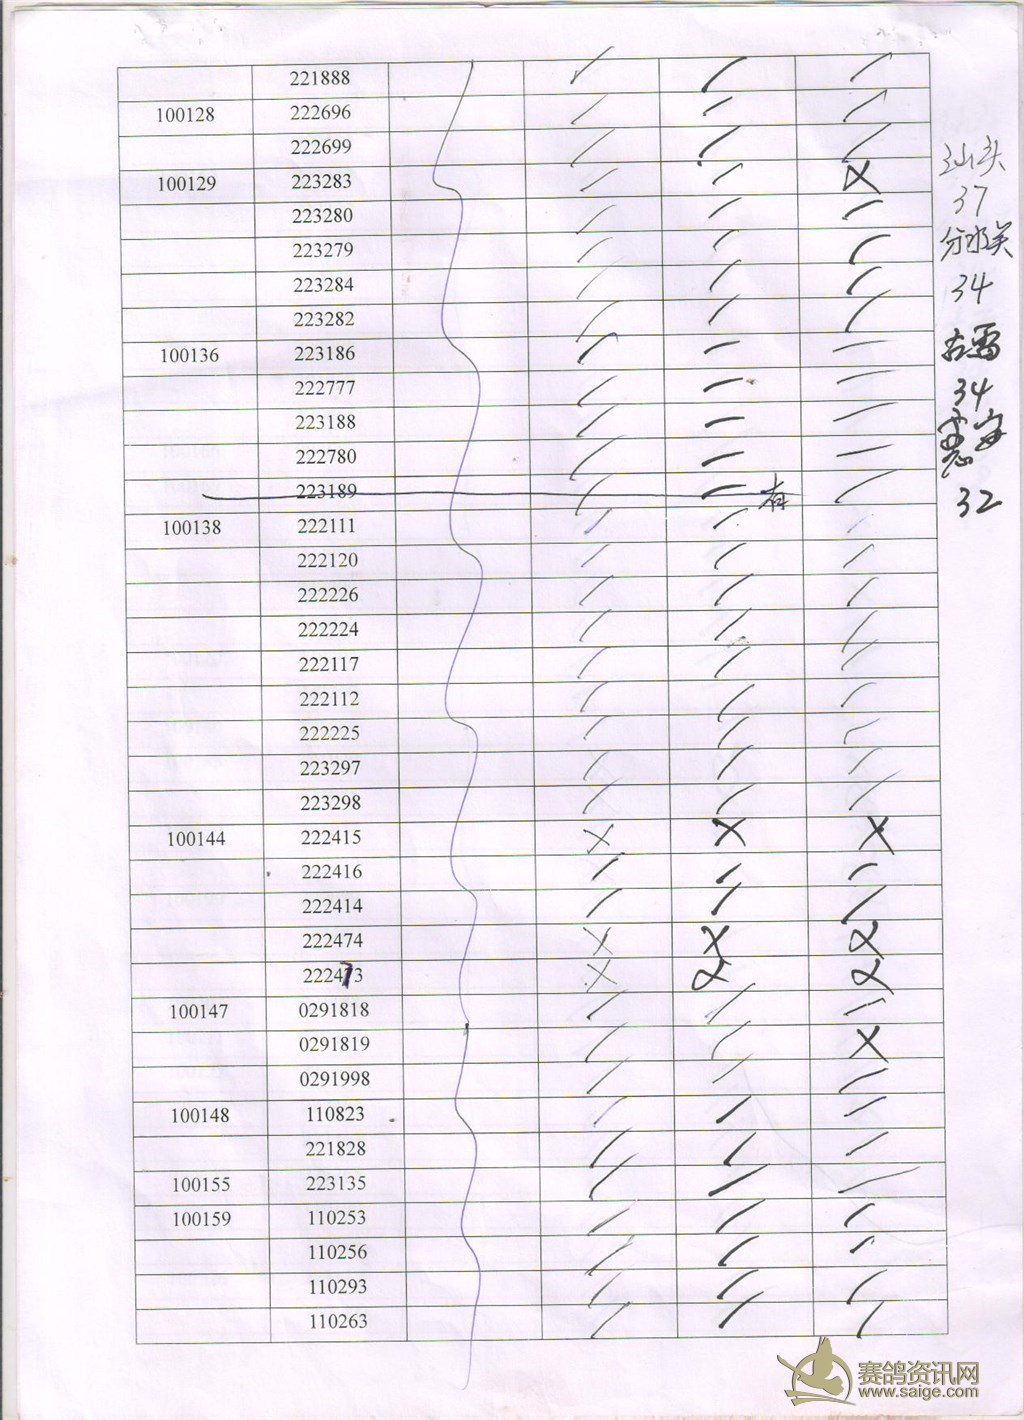 221888
100128 222696
222699
100129 223283
223280
223279
223284
223282
100136 223186
222777
223188
222780
223189 有
100138 222111
222120
222226
222224
222117
222112
222225
223297
223298
100144 222415
222416
222414
222474
222473
100147 0291818
0291819
0291998
100148 110823
221828
100155 223135
100159 110253
110256
110293
110263
汕头
37
分水关
34
34
32
赛鸽资讯网
www.saige.com